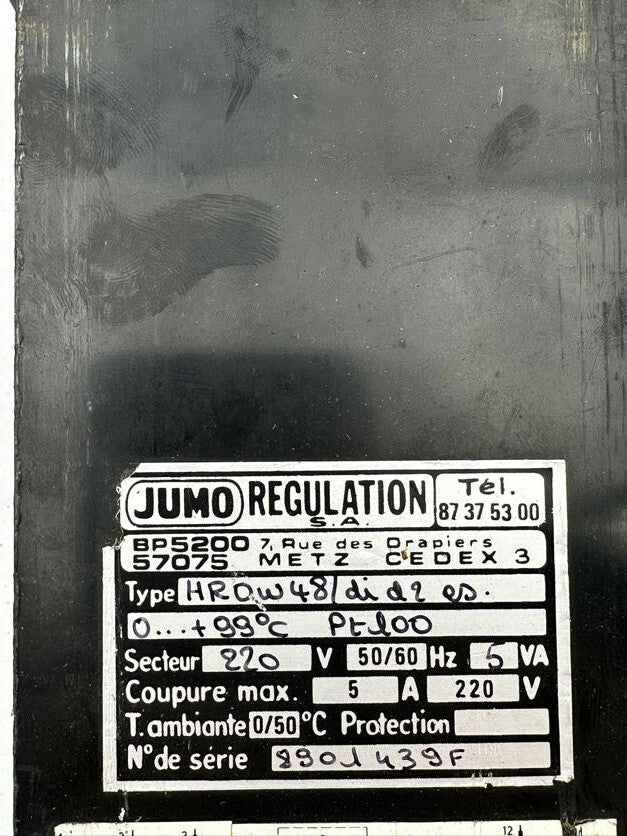 JUMO REGULATION S.A. Tél. 87 37 53 00
BP5200 7, Rue des Drapiers
57075 METZ CEDEX 3
Type HROW48/di d2 es.
0...+99°C Pt100
Secteur 220 V 50/60 Hz 5 VA
Coupure max. 5 A 220 V
T.ambiante 0/50 °C Protection
N° de série 8901439F
12